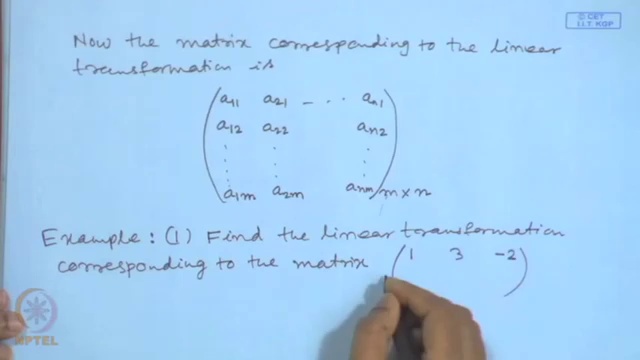 © CET
I.I.T. KGP
Now the matrix corresponding to the linear
transformation is
a11 a21 - ... an1
a12 a22 an2
a1m a2m anm m×n
Example: (1) Find the linear transformation
corresponding to the matrix (1 3 -2)
NPTEL